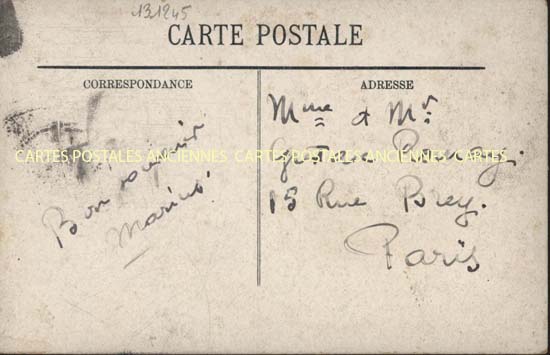 131245
CARTE POSTALE
CORRESPONDANCE
ADRESSE
Mme et Mr
CARTES POSTALES ANCIENNES CARTES POSTALES ANCIENNES CARTES
15 Rue Brey.
Paris
Bon souvenir